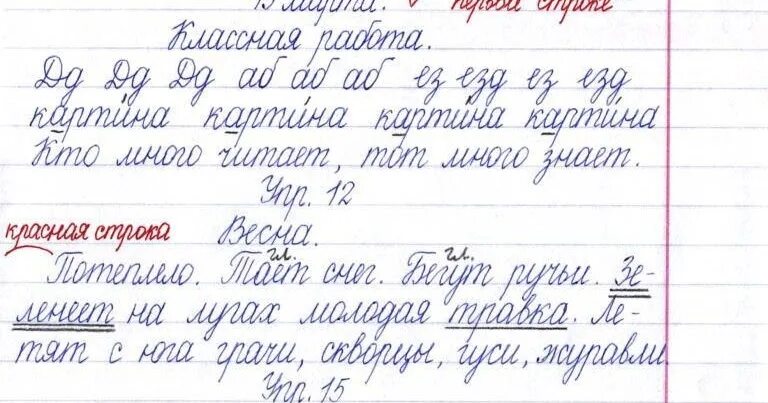 15 марта. ✓ первой строке
Классная работа.
Дд Дд Дд аб аб аб ез езд ез езд
карти́на карти́на карти́на карти́на
Кто много читает, тот много знает.
Упр. 12
красная строка Весна.
гл. гл.
Потеплело. Тает снег. Бегут ручьи. Зе-
ленеет на лугах молодая травка. Ле-
тят с юга грачи, скворцы, гуси, журавли.
Упр. 15